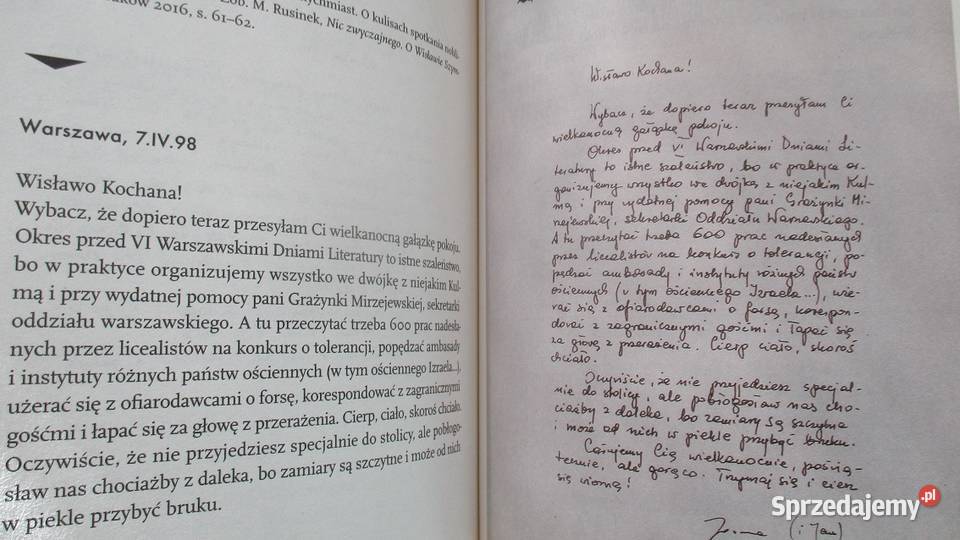 ychmiast. O kulisach spotkania nobli-
Zob. M. Rusinek, Nic zwyczajnego. O Wisławie Szym-
aków 2016, s. 61–62.
Warszawa, 7.IV.98
Wisławo Kochana!
Wybacz, że dopiero teraz przesyłam Ci wielkanocną gałązkę pokoju.
Okres przed VI Warszawskimi Dniami Literatury to istne szaleństwo,
bo w praktyce organizujemy wszystko we dwójkę z niejakim Kul-
mą i przy wydatnej pomocy pani Grażynki Mirzejewskiej, sekretarki
oddziału warszawskiego. A tu przeczytać trzeba 600 prac nadesła-
nych przez licealistów na konkurs o tolerancji, popędzać ambasady
i instytuty różnych państw ościennych (w tym ościennego Izraela...),
użerać się z ofiarodawcami o forsę, korespondować z zagranicznymi
gośćmi i łapać się za głowę z przerażenia. Cierp, ciało, skoroś chciało.
Oczywiście, że nie przyjedziesz specjalnie do stolicy, ale pobłogo-
sław nas chociażby z daleka, bo zamiary są szczytne i może od nich
w piekle przybyć bruku.
Wisławo Kochana!
Wybacz, że dopiero teraz przesyłam Ci
wielkanocną gałązkę pokoju.
Okres przed VI Warszawskimi Dniami Li-
teratury to istne szaleństwo, bo w praktyce or-
ganizujemy wszystko we dwójkę z niejakim Kul-
mą i przy wydatnej pomocy pani Grażynki Mi-
rzejewskiej, sekretarki Oddziału Warszawskiego.
A tu przeczytać trzeba 600 prac nadesłanych
przez licealistów na konkurs o tolerancji, po-
pędzać ambasady i instytuty różnych państw
ościennych (w tym ościennego Izraela...), uże-
rać się z ofiarodawcami o forsę, korespon-
dować z zagranicznymi gośćmi i łapać się
za głowę z przerażenia. Cierp ciało, skoroś
chciało.
Oczywiście, że nie przyjedziesz specjal-
nie do stolicy, ale pobłogosław nas cho-
ciażby z daleka, bo zamiary są szczytne
i może od nich w piekle przybyć bruku.
Całujemy Cię wielkanocnie, poświą-
tecznie, ale gorąco. Trzymaj się i ciesz
się wiosną!
Joanna (i Jan)
Sprzedajemy.pl